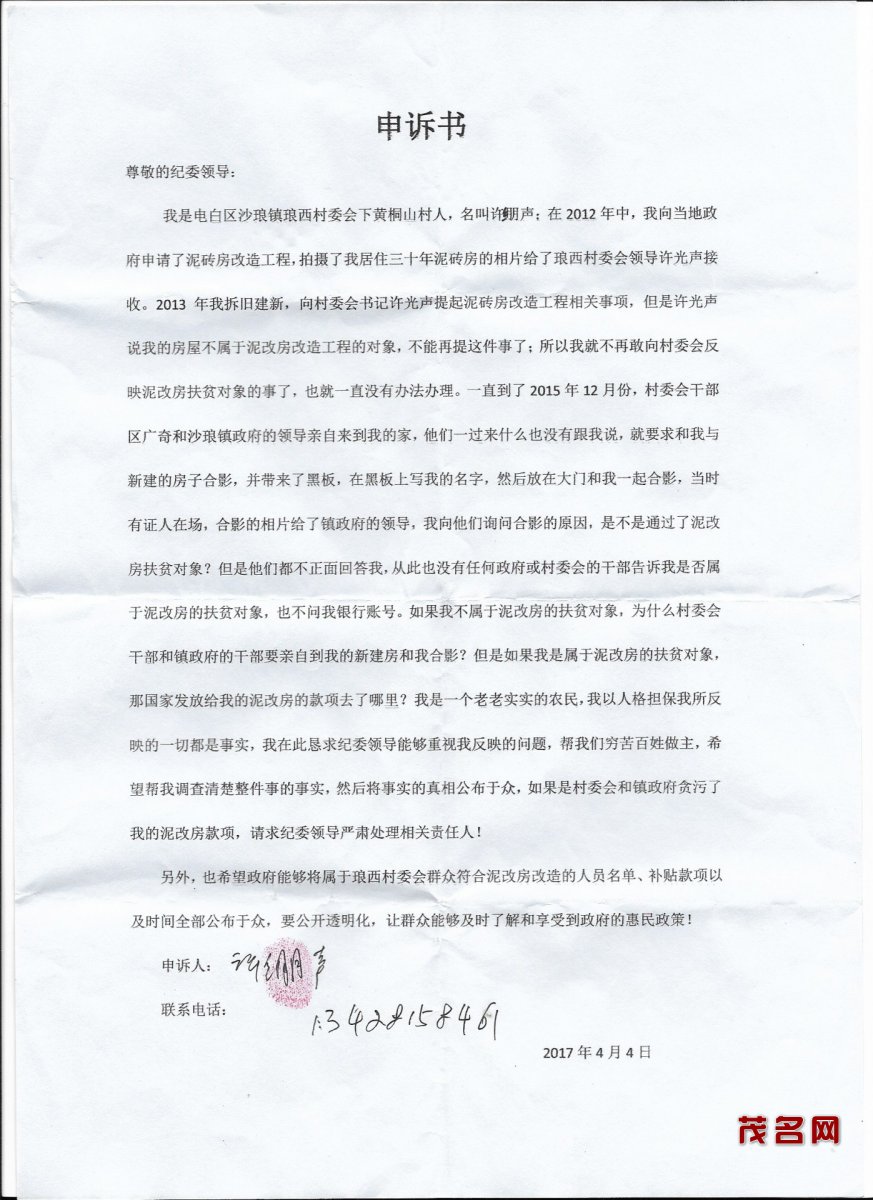 申诉书
尊敬的纪委领导：
我是电白区沙琅镇琅西村委会下黄桐山村人，名叫许鹏声；在 2012 年中，我向当地政
府申请了泥砖房改造工程，拍摄了我居住三十年泥砖房的相片给了琅西村委会领导许光声接
收。2013 年我拆旧建新，向村委会书记许光声提起泥砖房改造工程相关事项，但是许光声
说我的房屋不属于泥改房改造工程的对象，不能再提这件事了；所以我就不再敢向村委会反
映泥改房扶贫对象的事了，也就一直没有办法办理。一直到了 2015 年 12 月份，村委会干部
区广奇和沙琅镇政府的领导亲自来到我的家，他们一过来什么也没有跟我说，就要求和我与
新建的房子合影，并带来了黑板，在黑板上写我的名字，然后放在大门和我一起合影，当时
有证人在场，合影的相片给了镇政府的领导，我向他们询问合影的原因，是不是通过了泥改
房扶贫对象？但是他们都不正面回答我，从此也没有任何政府或村委会的干部告诉我是否属
于泥改房的扶贫对象，也不问我银行账号。如果我不属于泥改房的扶贫对象，为什么村委会
干部和镇政府的干部要亲自到我的新建房和我合影？但是如果我是属于泥改房的扶贫对象，
那国家发放给我的泥改房的款项去了哪里？我是一个老老实实的农民，我以人格担保我所反
映的一切都是事实，我在此恳求纪委领导能够重视我反映的问题，帮我们穷苦百姓做主，希
望帮我调查清楚整件事的事实，然后将事实的真相公布于众，如果是村委会和镇政府贪污了
我的泥改房款项，请求纪委领导严肃处理相关责任人！
另外，也希望政府能够将属于琅西村委会群众符合泥改房改造的人员名单、补贴款项以
及时间全部公布于众，要公开透明化，让群众能够及时了解和享受到政府的惠民政策！
申诉人：
联系电话：13428158461
2017 年 4 月 4 日
茂名网